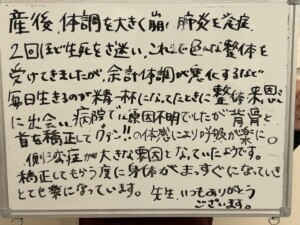 産後、体調を大きく崩し 肺炎を発症。
2回ほど生死をさ迷い、これまで色んな整体を
受けてきましたが、余計体調が悪化するなど
毎日生きるのが精一杯になってたときに 整体
に出会い、病院では原因不明でしたが 背骨と
首を矯正して の体感により呼吸が楽に。
側湾症が大きな要因となっていたようです。
矯正してもらう度に身体がまっすぐになっていき
とても楽になっています。 先生、いつもありがとう
ございます。